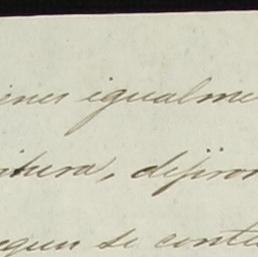 ienes igualme
ritura, dijeron
egun se conti